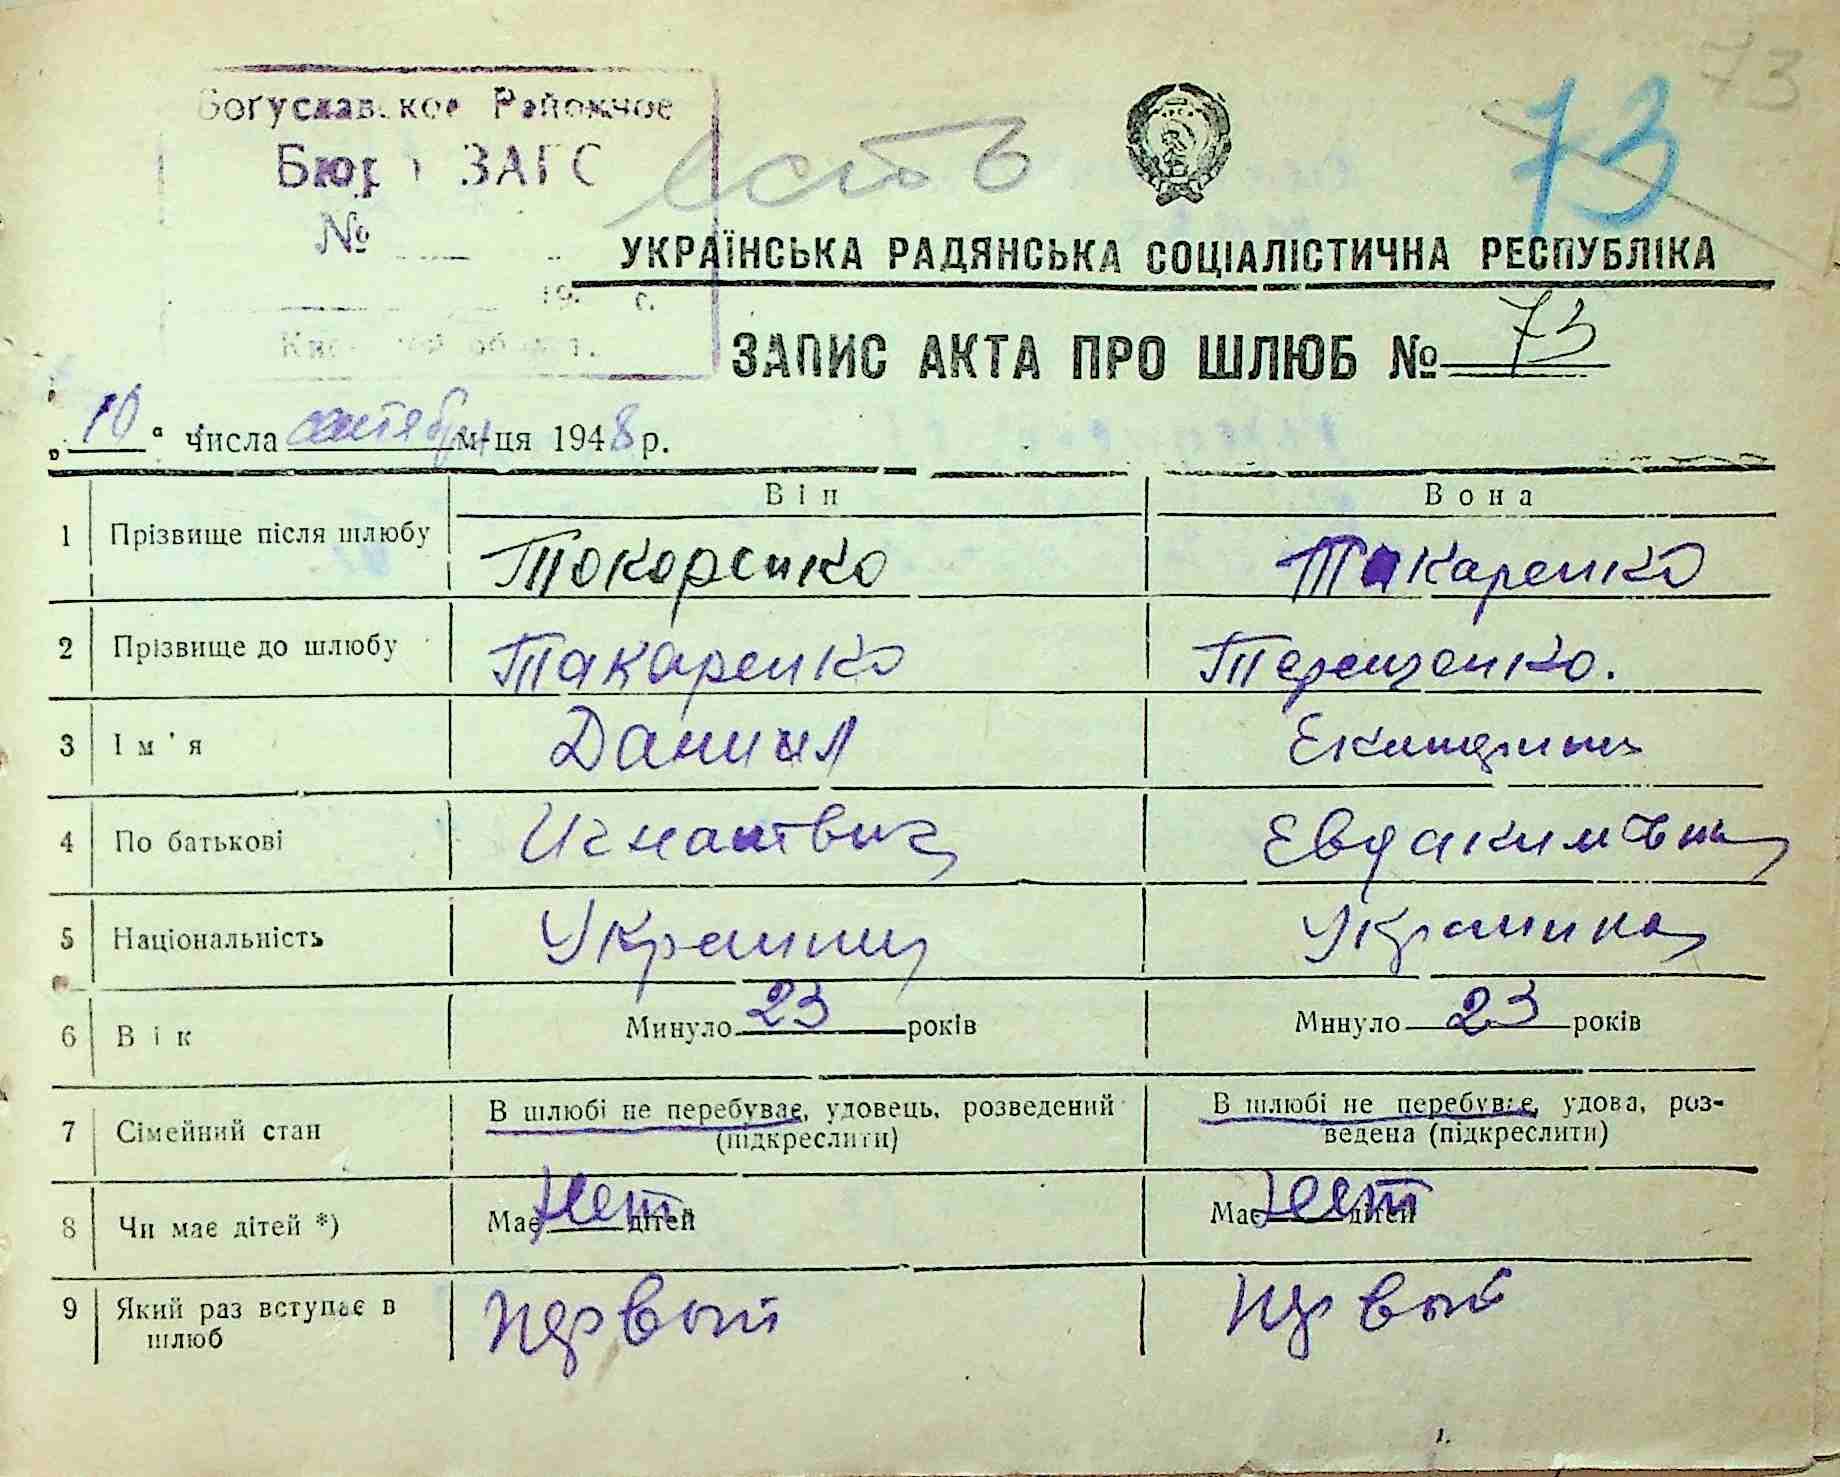 73
Богуславское Районное
Бюро ЗАГС
есть
73
№
УКРАЇНСЬКА РАДЯНСЬКА СОЦІАЛІСТИЧНА РЕСПУБЛІКА
19 г.
ЗАПИС АКТА ПРО ШЛЮБ № 73
„10“ числа сентября м-ця 1948 р.
Він Вона
1 Прізвище після шлюбу Токоренко Такаренко
2 Прізвище до шлюбу Такаренко Терещенко.
3 Ім'я Даниил
4 По батькові Игнатвич Евдакимовна
5 Національність Украинец Украинка
6 Вік Минуло 23 років Минуло 23 років
7 Сімейний стан В шлюбі не перебуває, удовець, розведений (підкреслити) В шлюбі не перебуває, удова, роз-
ведена (підкреслити)
8 Чи має дітей *) Має Нет дітей Має Нет дітей
9 Який раз вступає в шлюб первый первый
1.